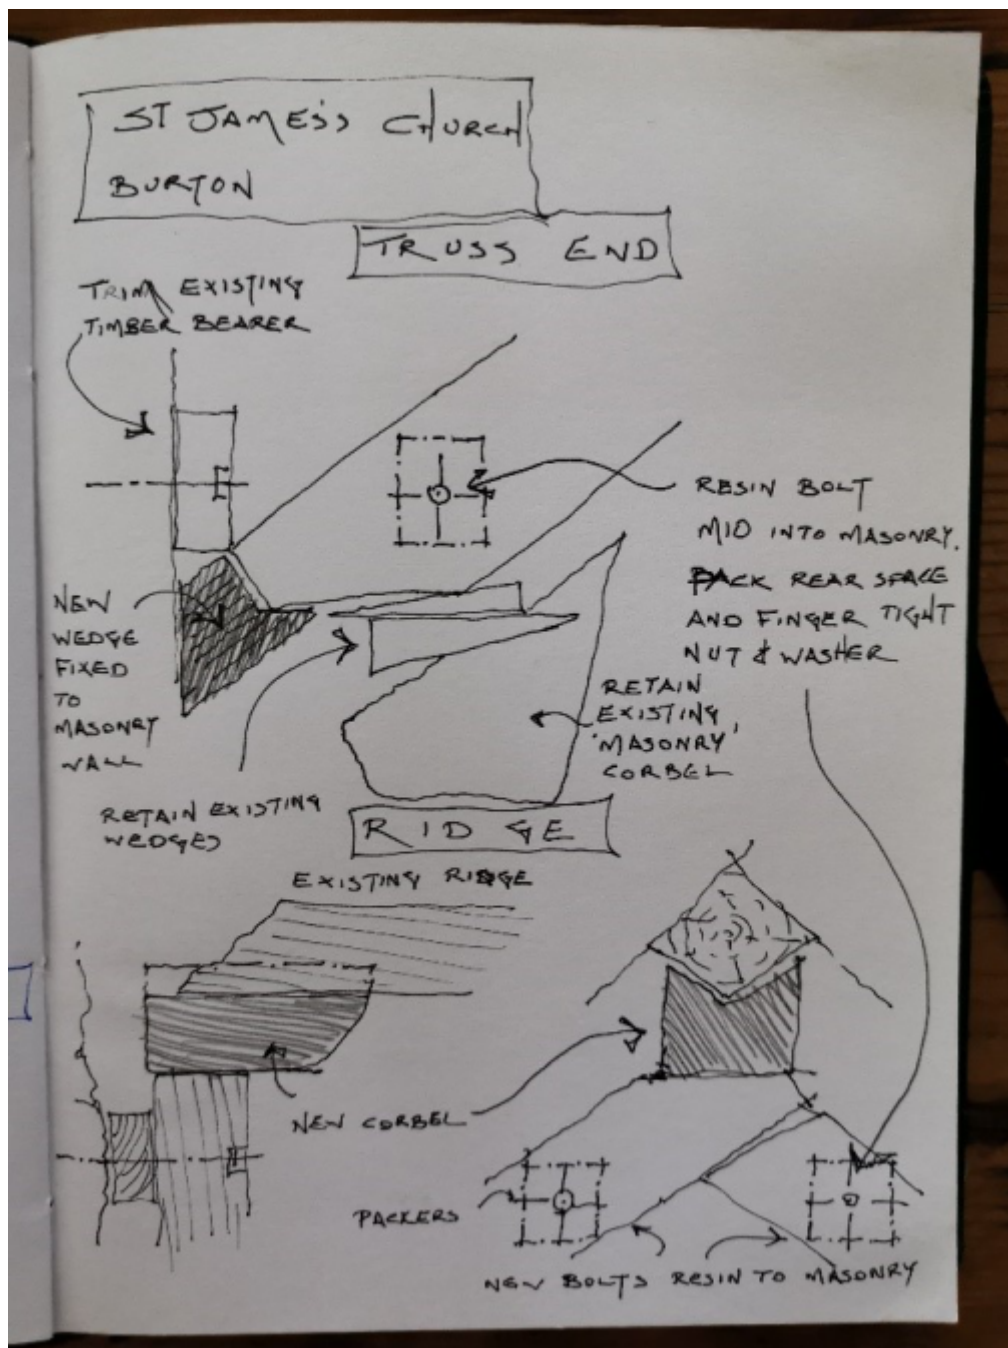 ST JAMES'S CHURCH
BURTON
TRUSS END
TRIM EXISTING
TIMBER BEARER
RESIN BOLT
M10 INTO MASONRY.
PACK REAR SPACE
AND FINGER TIGHT
NUT & WASHER
NEW
WEDGE
FIXED
TO
MASONRY
WALL
RETAIN
EXISTING
'MASONRY'
CORBEL
RETAIN EXISTING
WEDGES
RIDGE
EXISTING RIDGE
NEW CORBEL
PACKERS
NEW BOLTS RESIN TO MASONRY